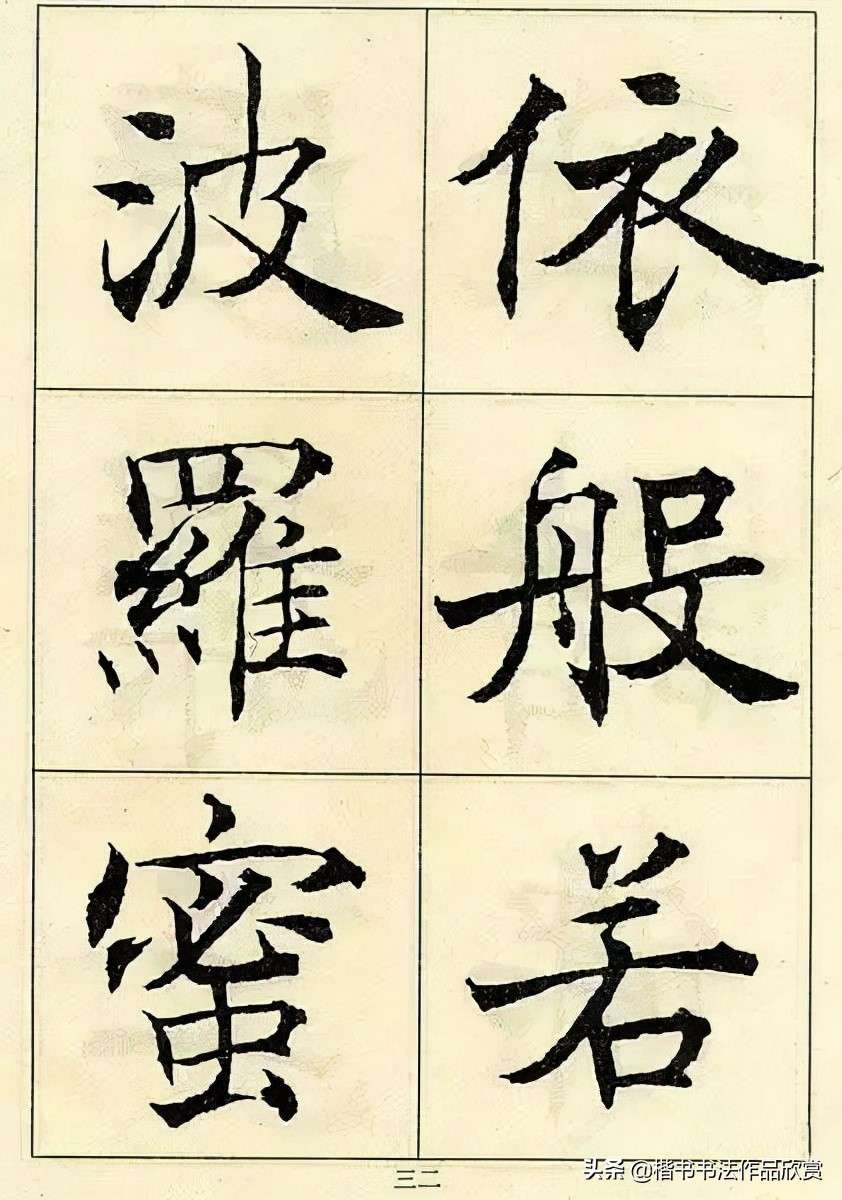 依般若
波羅蜜
三二
头条 @楷书书法作品欣赏